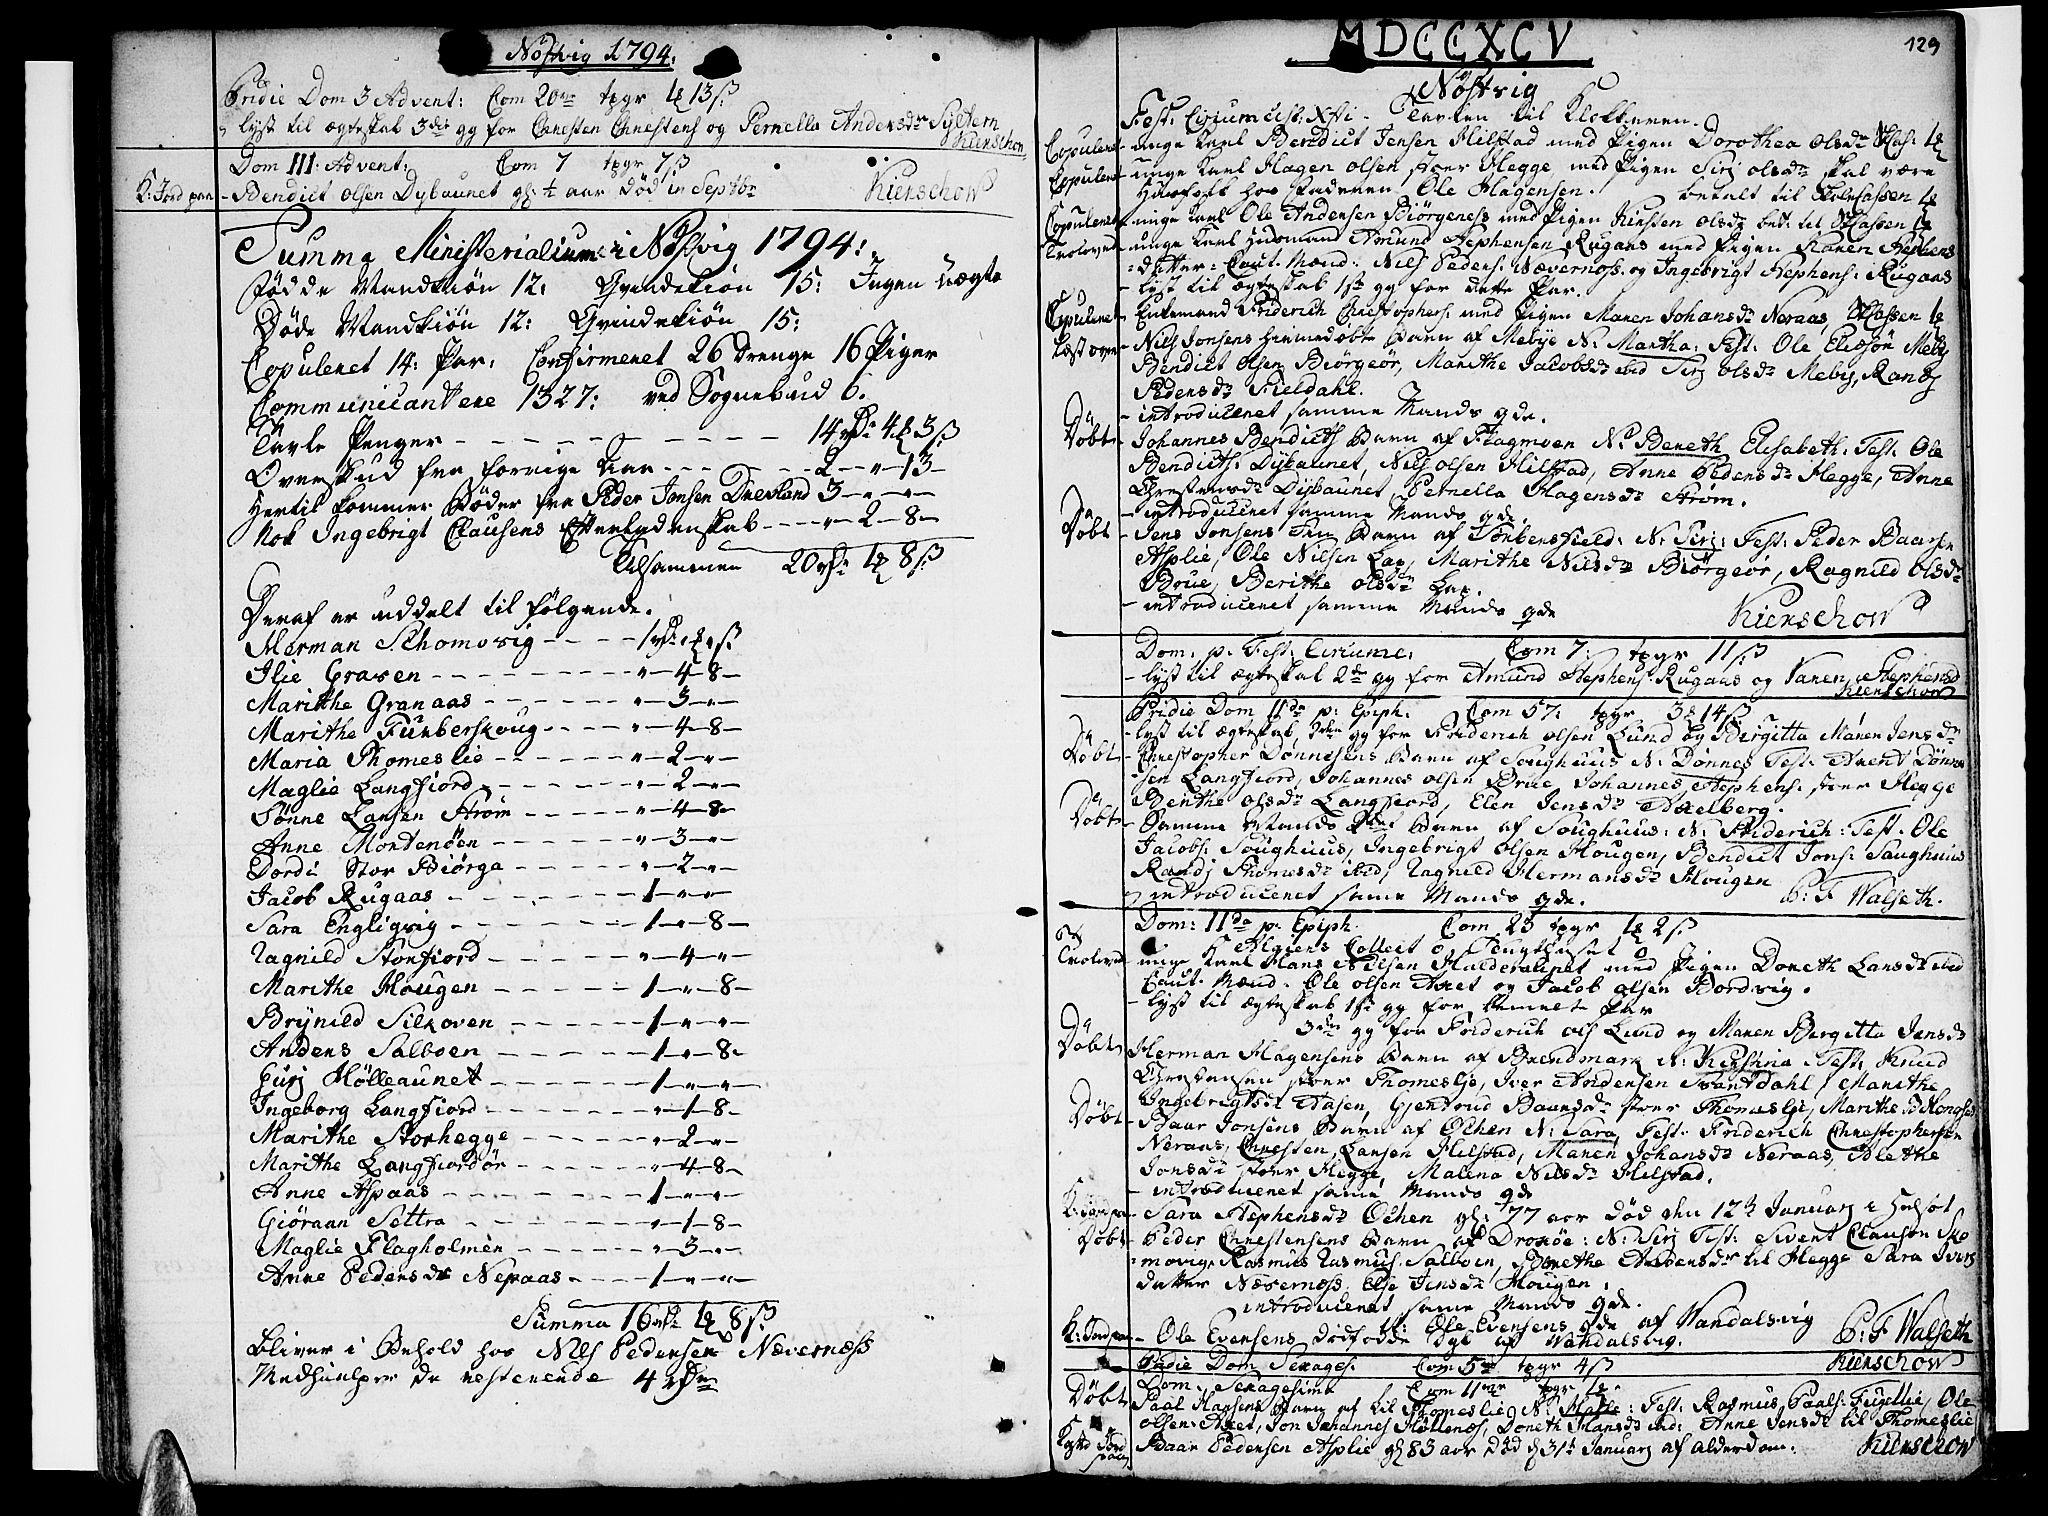 Nöstvig 1794.
Pridie Dom 3 Advent: Com 20 tpgr 13 ß
lyst til ægteskab 3die gg for Christen Christens og Pernella Andersdr
Kierschow
Dom III Advent: Com 7 tpgr 7 ß
K: Jord paa - Bendict olsen Dybaunet gl: ½ aar død in Septbr Kierschow
Summa Ministerialium i Nöstvig 1794:
Födde Mandkiön 12: Qvindekiön 15: Ingen uægte
Döde Mandkiön 12: Qvindekiön 15:
Copuleret 14: Par: Confirmeret 26 Drenge 16 Piger
Communicantere 1327: ved Sognebud 6.
Tavle Penger 14 rdr 4 3 ß
Overskud fra forrige Aar 2 " 13
Hertil kommer Böder fra Peder Jonsen Drevland 3 " "
Nok Ingebrigt Clausens Efterladenskab " 2 8
Tilsammen 20 rdr 1 8 ß
Deraf er uddelt til fölgende.
Merman Schomovig 1
Ilie Graven " 4 8
Marithe Granaas " 3 "
Marithe Funberskoug " 4 8
Maria Thomeslie " 2 "
Maglie Langfiord " 2 "
Sönne Larsen Ström " 4 8
Anne Mortenöen " 3 "
Dordi Stor Biörga " 2 "
Jacob Rugaas 1 " "
Sara Engligvig 1 " 8
Ragnild Storfiord " 4 "
Marithe Hougen 1 " 8
Brynild Silkoven 1 " "
Anders Salboen 1 " 8
Guri Hölleaunet 1 " "
Ingeborg Langfiord " 1 8
Marithe Storhegge " 2 "
Marithe Langfiordör " 4 8
Anne Aspaas 1 " "
Giöraan Settra " 1 8
Maglie Flagholmen " 3 "
Anne Pedersdr Neraas 1 " "
Summa 16 rdr 1 8 ß
bliver i Behold hos Nils Pedersen Nævernæss
Medhielper de resterende 4 rdr
MDCCXCV
129
Nöstvig
Fest: Circumcis: Xsti. Tavlen til Klokkeren.
Copuleret - unge Karl Bendict Jensen Hilstad med Pigen Dorothea olsdr
Copuleret - unge Karl Hagen olsen stoer Hegge med Pigen Siri olsdr skal være
Huusfolk hos Faderen Ole Hagensen. betalt til
Copuleret - unge Karl Ole Andersen Biörgeness med Pigen Kirsten olsdr bet: til
Trolovet - unge Karl Huusmand Amund Stephensen Rugaas med Pigen Karen Stephens
datter: Caut. Mænd: Nils Peders: Nævernoss. og Ingebrigt Stephens: Rugaas
- lyst til ægteskab 1ste gg for dette Par.
Copuleret - Enkemand Friderich Christophers: med Pigen Maren Johansdr Neraas,
Kast over - Nils Jonsens hiemedöbte Barn af Mebye N: Martha: Test: Ole Elissön Meby
Bendict olsen Biörgeör, Marithe Jacobsdr ibid Siri olsdr Meby, Randj
Pedersdr Fieldahl.
- introduceret samme Mands qde.
Döbt - Johannes Bendicts Barn af Flagmoen N: Bereth Elisabeth: Test: Ole
Bendicts: Dybaunet, Nils olsen Hilstad, Anne Pedersdr Hegge, Anne
Christensdr Dybaunet Pernella Hagensdr Ström.
- introduceret samme Mands qde
Döbt - Jens Jonsens Barn af Torbersfield: N: Siri: Test: Peder Baarsen
Asplie, Ole Nilsen Lap, Marithe Nilsdr Biörgeör, Ragnild olsdr
Brue, Berithe olsdr Lap.
- introduceret samme Mands qde Kierschow
Dom: p. Fest: Circumc: Com 7: tpgr 11 ß
- lyst til ægteskab 2de gg for Amund Stephens: Rugaas og Karen Stephensd
Kierschow
Pridie Dom 11da p: Epiph. Com 57: tpgr 3 14 ß
- lyst til ægteskab gg for Friderich olsen Lund og Birgitta Maren Jensdr
Döbt - Christopher Dönnesens Barn af Soughuus N: Dönnes Test: Arent Dönne
sen Langfiord, Johannes olsen Brue Johannes Stephens: stoer Hegge
Berithe olsdr Langfiord, Elen Jensdr Axelberg.
Döbt - Samme Mands Barn af Soughuus: N: Friderich: Test. Ole
Jacobs: Soughuus, Ingebrigt olsen Hougen, Bendict Jons: Saughuus
Randj Thomesdr ibid, Ragnild Hermansdr Hougen
introduceret samme Mands qde. P: F Walseth.
Dom: 11da p: Epiph. Com 23 tpgr 1 2 ß
Collect
Trolovet - unge Karl Hans Nilsen med Pigen Doreth Larsdr ibid
Caut. Mænd. Ole olsen Aaret og Jacob olsen Bordvig.
- lyst til ægteskab 1ste gg for bemelte Par
3die gg for Friderich ols Lund og Maren Birgitta Jensdr
Döbt Herman Hagensens Barn af Brendmark N: Kirstina: Test: Knud
Christensen stoer Thomeslje, Iver Andersen Svartdahl, Marithe
Ingebrigtsdr Aasen, Gjertrud Baarsdr stoer Thomeslje, Marithe
Döbt - Baar Jonsens Barn af Ochen N: Sara, Test: Friderich Christophersen
Neraas, Christen Larsen Hilstad, Maren Johansdr Neraas, Blethe
Jonsdr stoer Hegge, Malena Nilsdr Hilstad.
- introduceret samme Mands qde
K: Jord paa - Sara Stephensdr Ochen gl: 77 aar död den 12te Januarj
Döbt - Peder Christensens Barn af Droxöe: N: Siri Test: Sivert Clausen Sko
movig, Rasmus Rasmus: Salboen, Berethe Andersdr til Hegge Sara Ivers
datter Næverness Else Jensdr Hougen.
introduceret samme Mands qde.
it: Ole Evensens qde af Vandalsvig
K: Jord paa - Ole Evensens dödfödde af Vandalsvig. P: F Walseth
Pridie Dom Sexages: Com 5 tpgr 4 ß Kierschow
Dom. Sexagesima Com 11 tpgr 1
Döbt Paal Hansens Barn af lil Thomeslie N: Test: Rasmus Paals: Fugellie, Ole
olsen Aaret, Jon Johannes Höllenes, Doreth Hansdr ibid: Anne Jensdr lil Thomeslie
Kast Jord paa - Baar Pedersen Asplie gl 83 aar död d 31te Januarj af alderdom. Kierschow